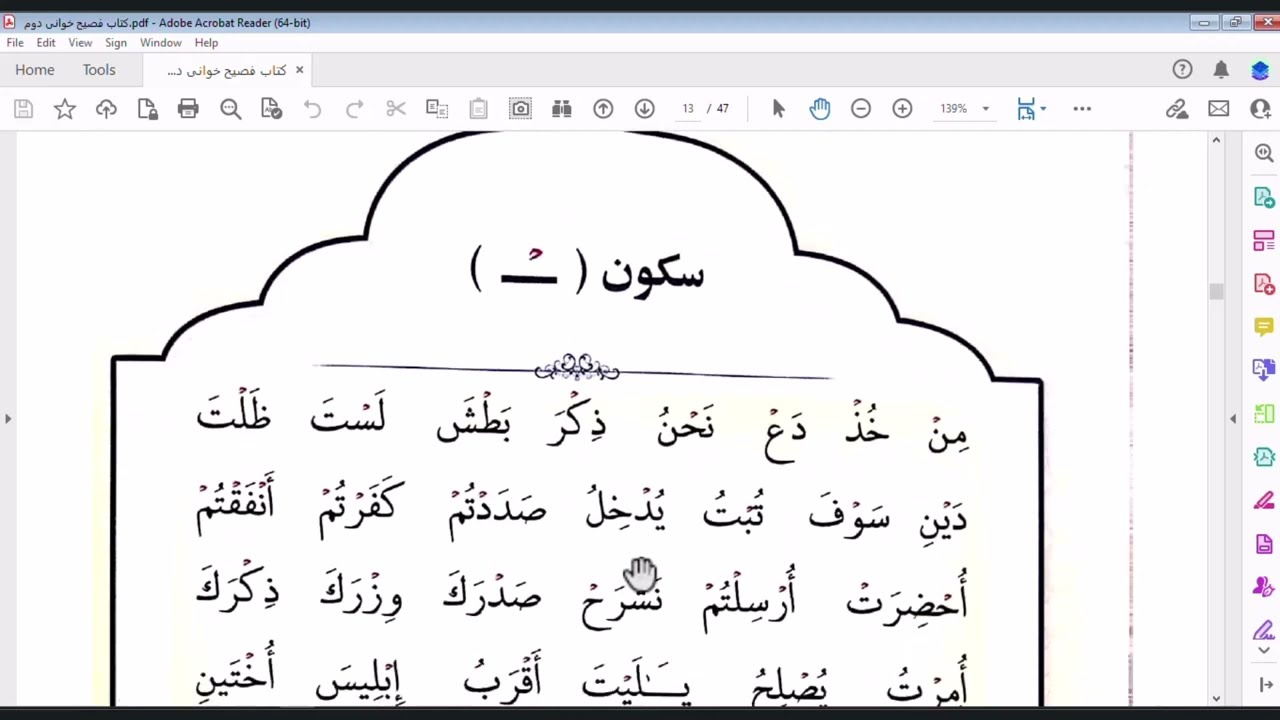 کتاب فصیح خوانی دوم.pdf - Adobe Acrobat Reader (64-bit)
File Edit View Sign Window Help
Home Tools کتاب فصیح خوانی د...
13 / 47 139%
سکون ( ـْ )
مِنْ خُذْ دَعْ نَحْنُ ذِكْرَ بَطْشَ لَسْتَ ظَلْتَ
دَيْنِ سَوْفَ تُبْتُ يُدْخِلُ صَدَدْتُمْ كَفَرْتُمْ أَنْفَقْتُمْ
أُحْضِرَتْ أُرْسِلْتُمْ نَشْرَحْ صَدْرَكَ وِزْرَكَ ذِكْرَكَ
أُمِرْتُ يُصْلِحُ يَـٰلَيْتَ أَقْرَبُ إِبْلِيسَ أُخْتَينِ